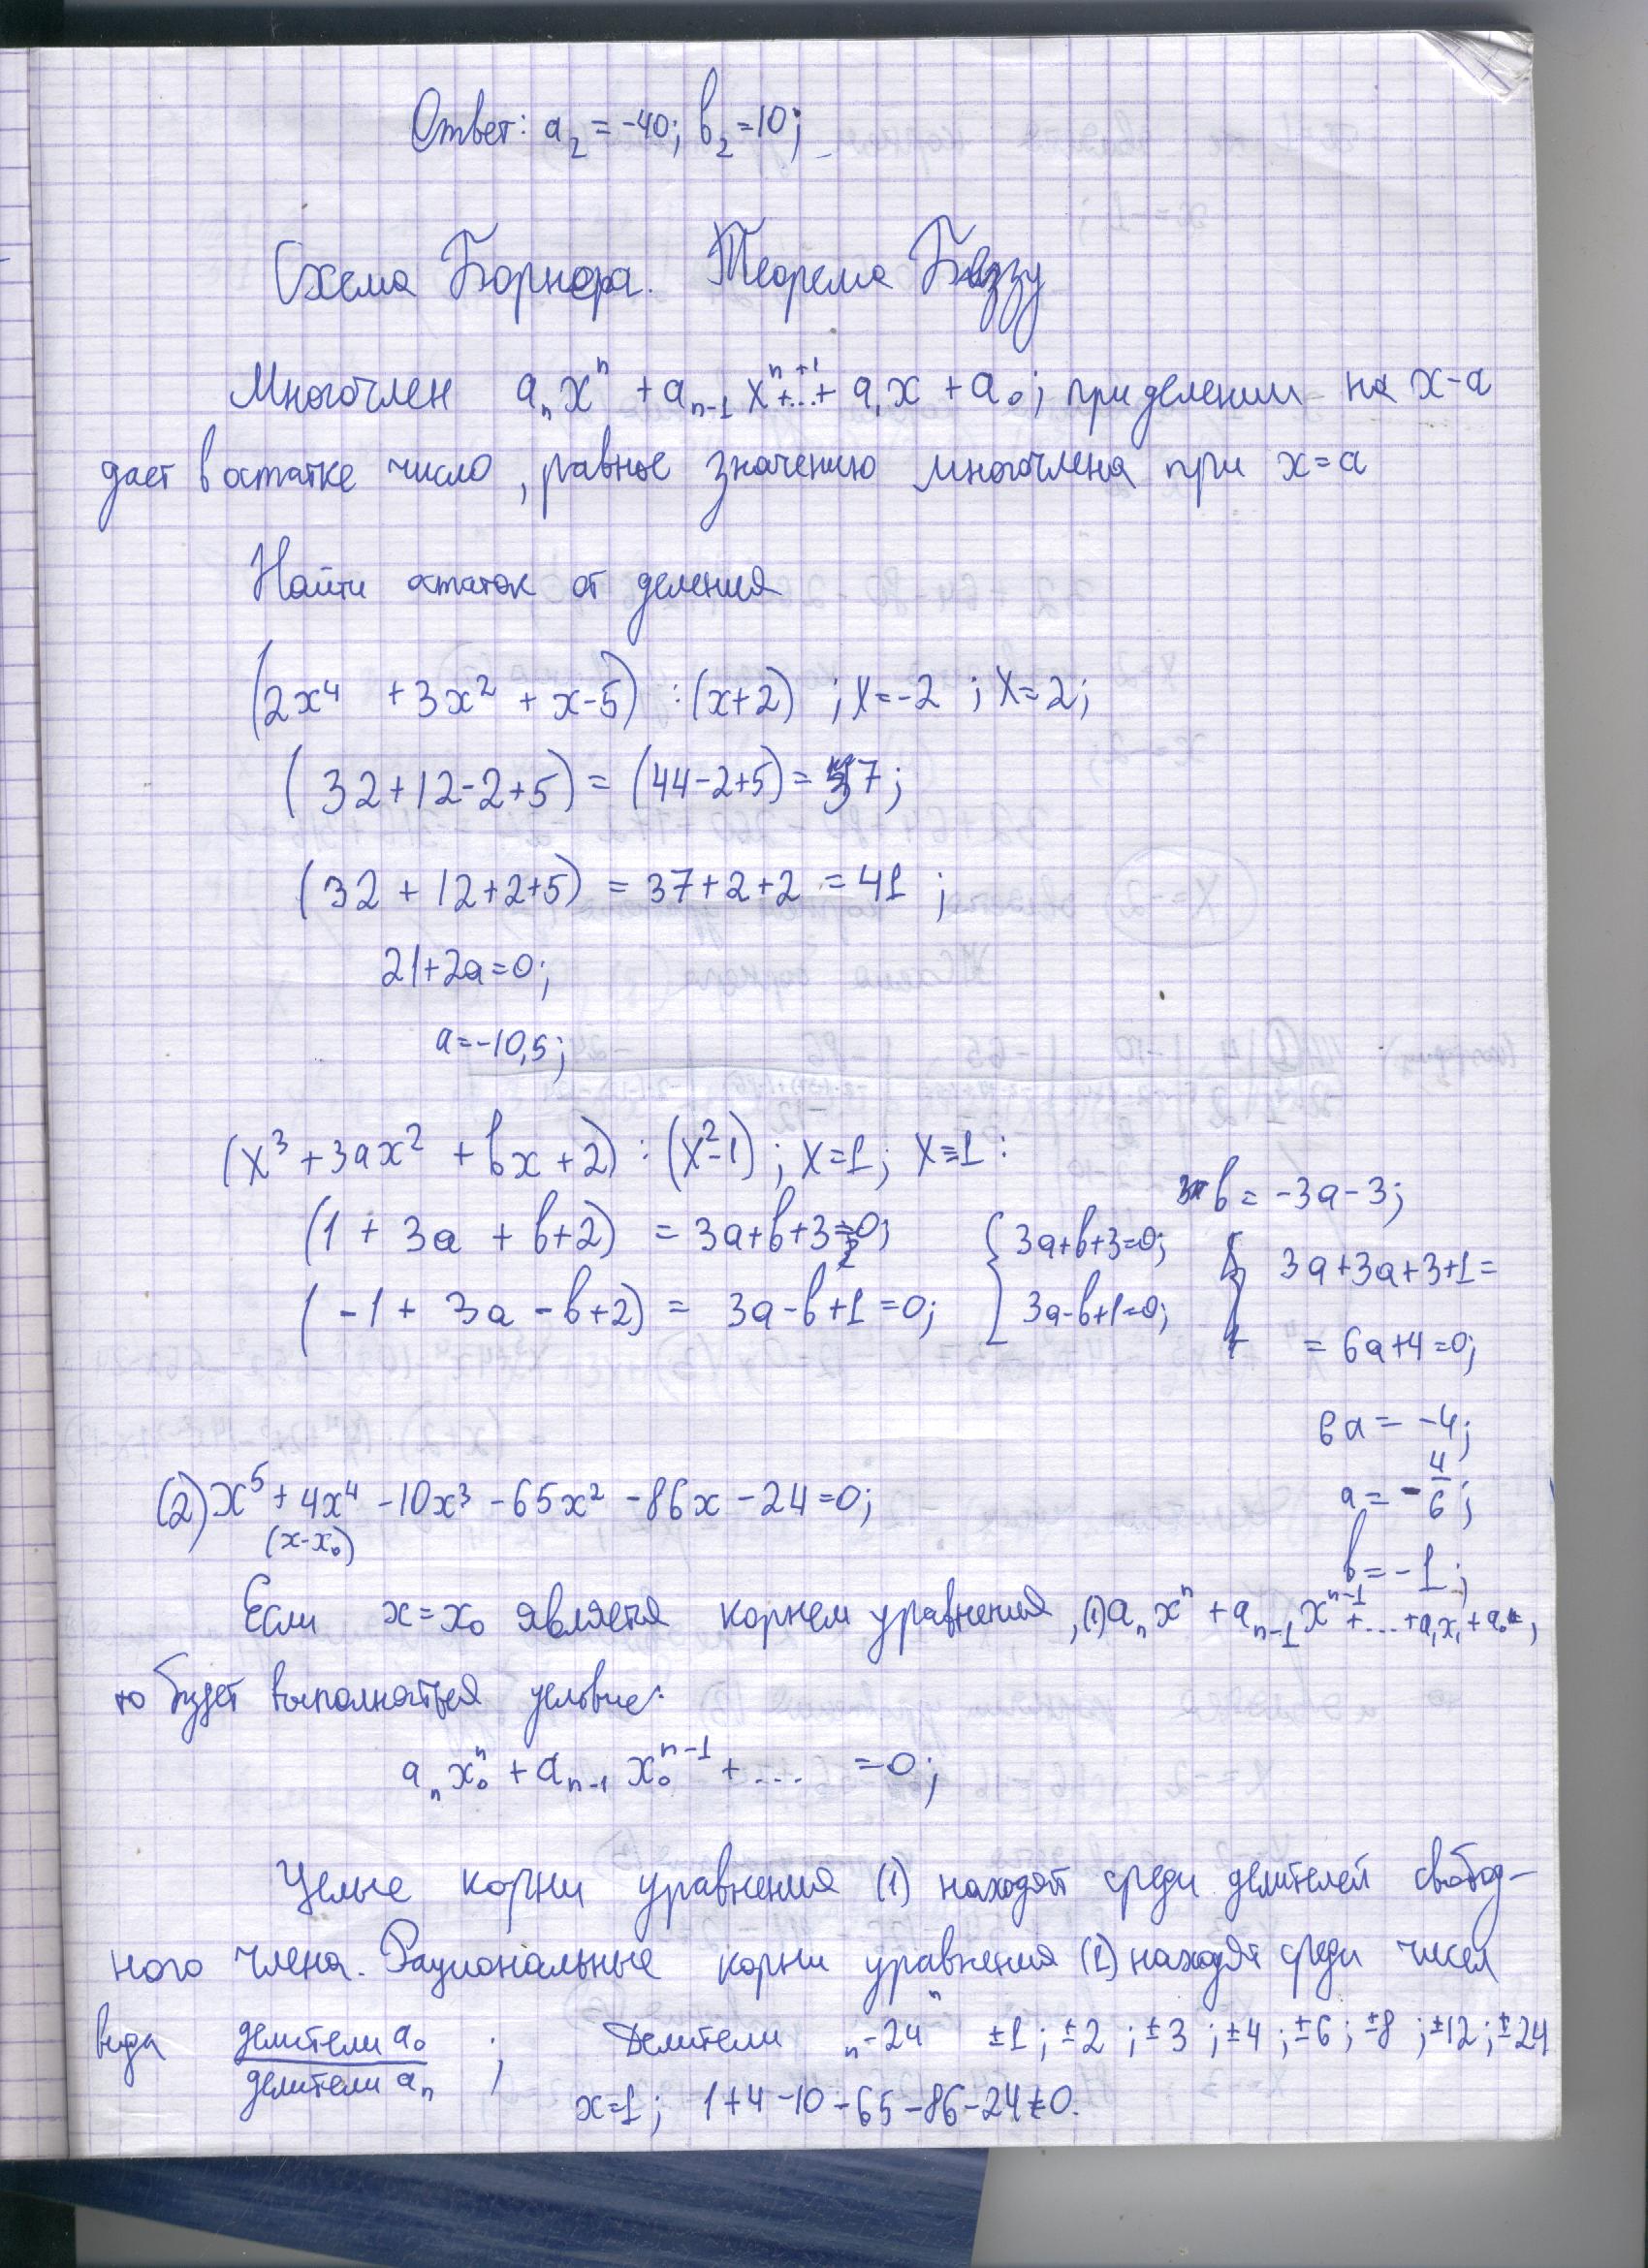 Ответ: a₂ = -40; b₂ = 10;
Схема Борнера. Теорема Безу
Многочлен aₙxⁿ + aₙ₋₁xⁿ⁺¹ + ... + a₁x + a₀; при делении на x-a
дает в остатке число, равное значению многочлена при x=a
Найти остаток от деления
(2x⁴ + 3x² + x-5) : (x+2) ; x=-2 ; x=2;
(32+12-2+5) = (44-2+5) = 37;
(32 + 12+2+5) = 37+2+2 = 41 ;
21+2a=0;
a=-10,5;
(x³ + 3ax² + bx + 2) : (x²-1) ; x=1; x=1:
b = -3a-3;
(1 + 3a + b+2) = 3a+b+3=0; { 3a+b+3=0;
3a+3a+3+1=
(-1 + 3a - b+2) = 3a-b+1=0; 3a-b+1=0;
= 6a+4=0;
6a = -4;
a = -4/6;
(2) x⁵ + 4x⁴ - 10x³ - 65x² - 86x - 24=0;
(x-x₀)
b=-1;
Если x=x₀ является корнем уравнения, (1) aₙxⁿ + aₙ₋₁xⁿ⁻¹ + ... + a₁x₁ + a₀,
то будет выполняться условие:
aₙx₀ⁿ + aₙ₋₁x₀ⁿ⁻¹ + .... =0;
Целые корни уравнения (1) находят среди делителей свобод-
ного члена. Рациональные корни уравнения (1) находят среди чисел
вида делители a₀ / делители aₙ ; Делители "-24" ±1; ±2; ±3; ±4; ±6; ±8; ±12; ±24
x=1; 1+4-10-65-86-24≠0.